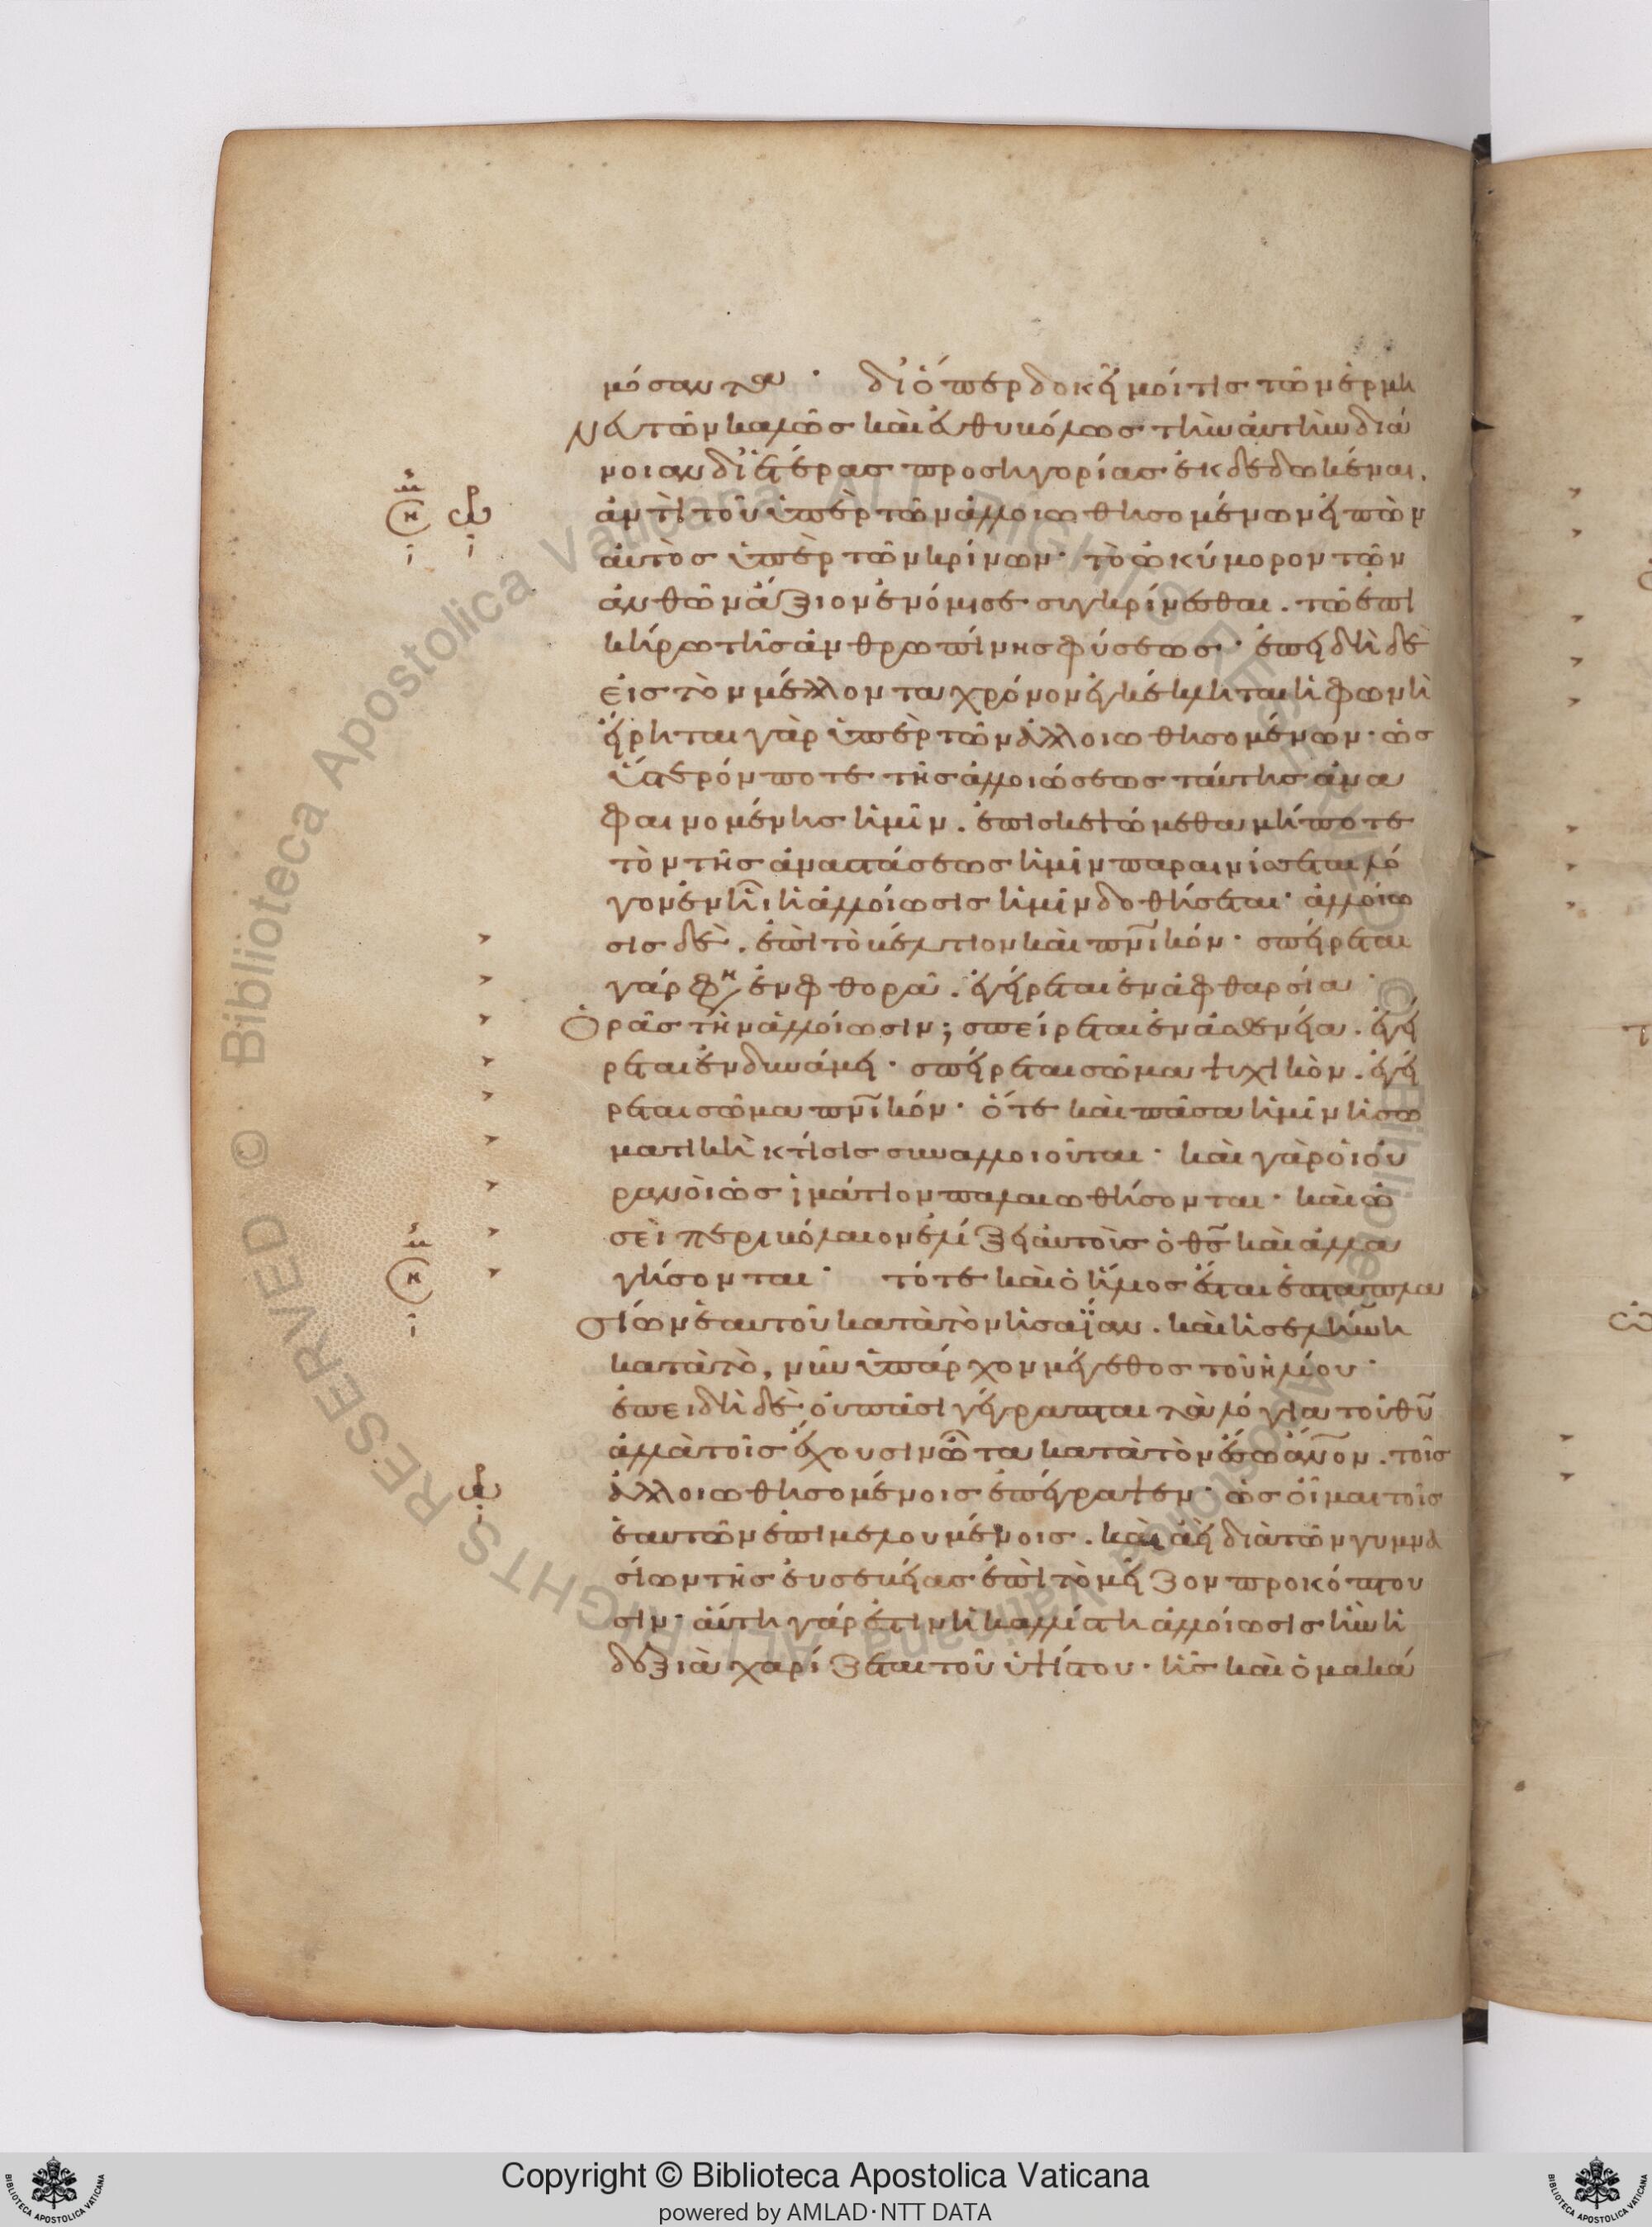 μόσαντα· διόπερ δοκεῖ μοί τις τῶν ἑρμη
νευτῶν καλῶς καὶ εὐθυβόλως τὴν αὐτὴν διά
νοιαν δι' ἑτέρας προσηγορίας ἐκδεδωκέναι.
ἀντὶ τοῦ ὑπὲρ τῶν ἀλλοιωθησομένων εἰπὼν
αὐτὸς ὑπὲρ τῶν κρίνων· τὸ ὠκύμορον τῶν
ἀνθῶν ἄξιον ἐνόμισε συγκρίνεσθαι. τῶ ἐπι
κήρω τῆς ἀνθρωπίνης φύσεως· ἐπειδὴ δὲ
εἰς τὸν μέλλοντα χρόνον ἐγκέκλιται ἡ φωνὴ
εἴρηται γὰρ ὑπὲρ τῶν ἀλλοιωθησομένων· ὡς
ὕστερόν ποτε τῆς ἀλλοιώσεως ταύτης ἀνα
φαινομένης ἡμῖν. ἐπισκεψώμεθα μήποτε
τὸν τῆς ἀναστάσεως ἡμῖν παραινίσσεται λό
γον ἐν ἧι ἡ ἀλλοίωσις ἡμῖν δοθήσεται· ἀλλοίω
σις δὲ. ἐπὶ τὸ βέλτιον καὶ πνικόν· σπείρεται
γάρ φη ἐν φθορᾶ. ἐγείρεται ἐν ἀφθαρσία·
Ὁρᾶς τὴν ἀλλοίωσιν; σπείρεται ἐν ἀσθενεία. ἐγεί
ρεται ἐν δυνάμει· σπείρεται σῶμα ψυχικὸν. ἐγεί
ρεται σῶμα πνικόν· ὅτε καὶ πᾶσα ἡμῖν ἡ σω
ματικὴ κτίσις συναλλοιοῦται· καὶ γὰρ οἱ οὐ
ρανοὶ ὡς ἱμάτιον παλαιωθήσονται· καὶ ὡ
σεὶ περιβόλαιον ἑλίξει αὐτοὺς ὁ θς καὶ ἀλλα
γήσονται· τότε καὶ ὁ ἥλιος ἔσται ἑπταπλα
σίων ἑαυτοῦ κατὰ τὸν ἡσαΐαν. καὶ ἡ σελήνη
κατὰ τὸ, νῦν ὑπάρχον μέγεθος τοῦ ἡλίου·
ἐπειδὴ δὲ οὐ πᾶσι γέγραπται τὰ λόγια τοῦ θυ
ἀλλὰ τοῖς ἔχουσιν ὦτα κατὰ τὸν ἔσω ἄνον. τοῖς
ἀλλοιωθησομένοις ἐπέγραψεν· ὡς οἶμαι τοῖς
ἑαυτῶν ἐπιμελουμένοις. καὶ ἀεὶ διὰ τῶν γυμνα
σίων τῆς εὐσεβείας ἐπὶ τὸ μεῖζον προκόπτου
σιν· αὕτη γάρ ἐστιν ἡ καλλίστη ἀλλοίωσις ἣν ἡ
δεξιὰ χαρίζεται τοῦ ὑψίστου· ἧς καὶ ὁ μακά
Copyright © Biblioteca Apostolica Vaticana
powered by AMLAD·NTT DATA